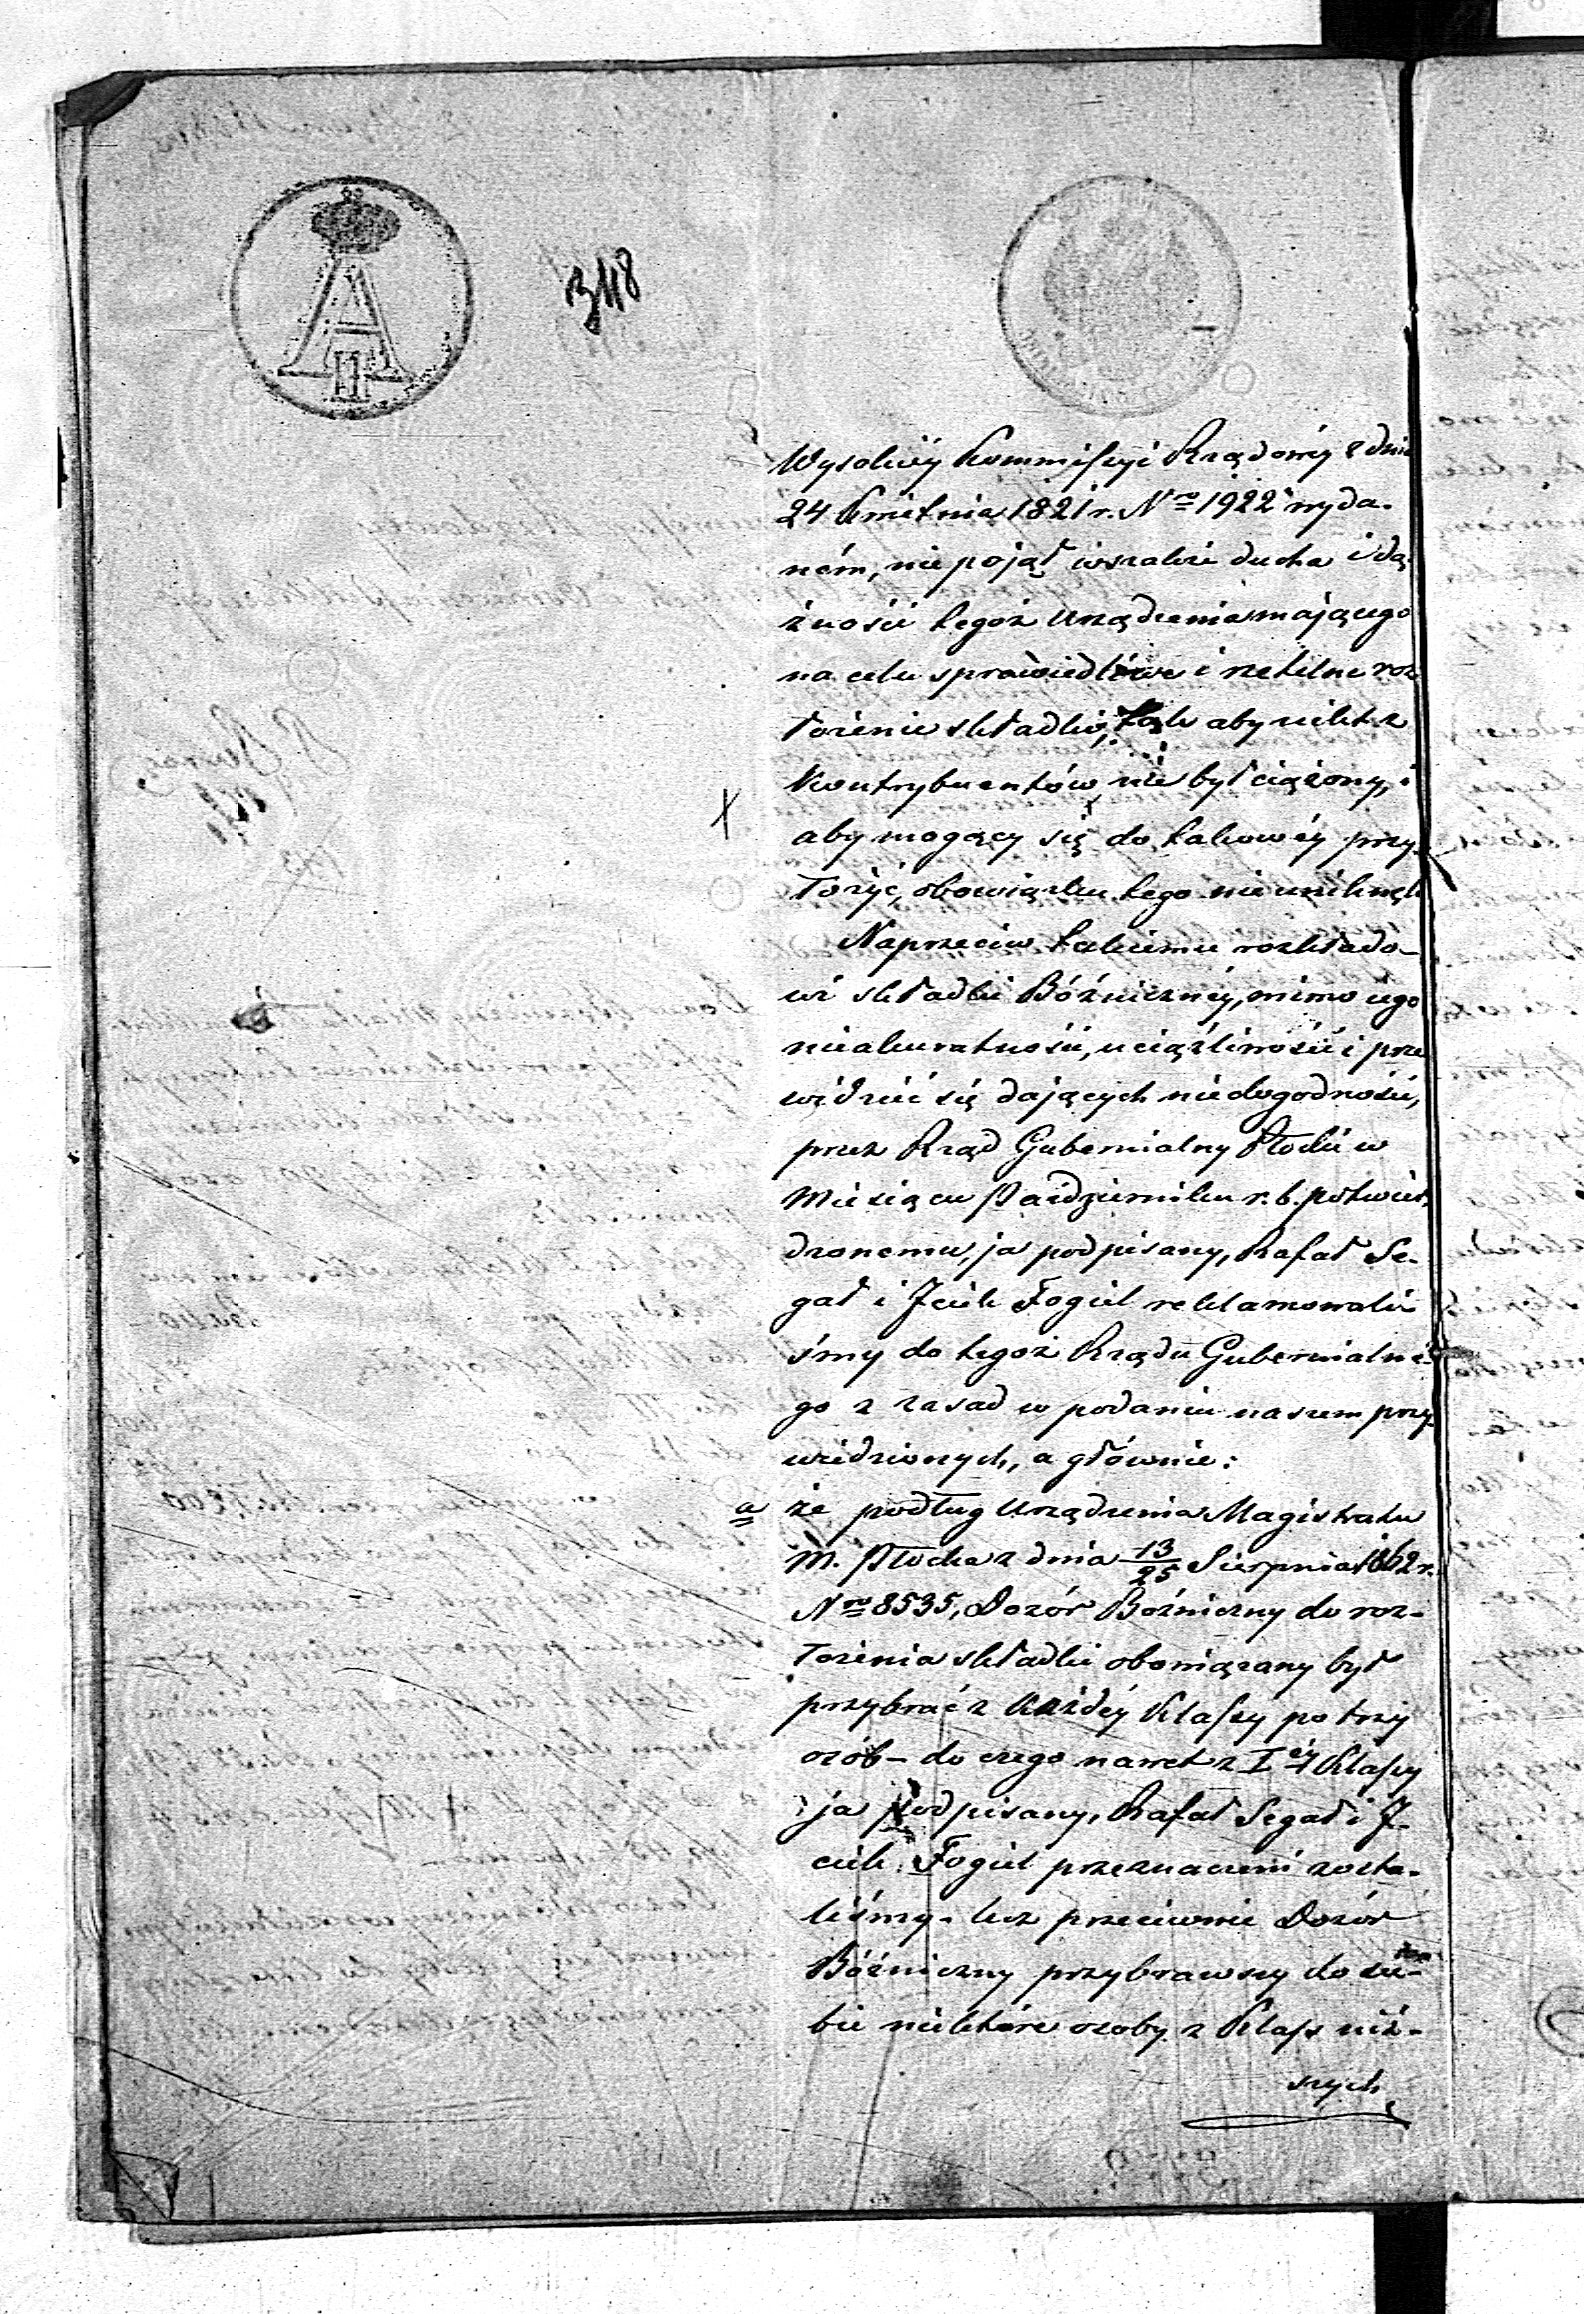 A
II
318
Wysokiéy Kommissyi Rządowéy z dnia
24 Kwietnia 1821 r. Nro 1922 wyda-
ném, nie pojął wszakże ducha i dą-
żności tegoż Urządzenia mającego
na celu sprawiedliwe i rzetelne roz-
łożenie składki, tak aby nikt z
Kontrybuentów nie był ciążony, i
aby mogący się do takowéy przy-
łożyć, obowiązku tego nie uniknęli
Naprzeciw takiemu rozkłado-
wi składki Bóźniczney, mimo iego
nieakuratności, uciążliwości i prze
widzieć się dających niedogodności,
przez Rząd Gubernialny Płocki w
Miesiącu Pazdzierniku r. b. potwier-
dzonemu, ja podpisany, Rafał Se-
gał i Jcik Fogiel reklamowali
śmy do tegoż Rządu Gubernialne-
go z zasad w podaniu naszem przy-
wiedzionych, a głównie:
a że podług Urządzenia Magistratu
M. Płocka z dnia 13/25 Sierpnia 1862 r.
Nro 8535, Dozór Bożniczny do roz-
łożenia składki obowiązany był
przybrać z każdéy Klassy po trzy
osób - do czego nawet z Iéy Klassy
ja podpisany, Rafał Segał i J-
cik Fogiel przeznaczeni zosta-
liśmy - lecz przeciwnie Dozór
Bóżniczny przybrawszy do sie-
bie niektóre osoby z Klass niż-
szych